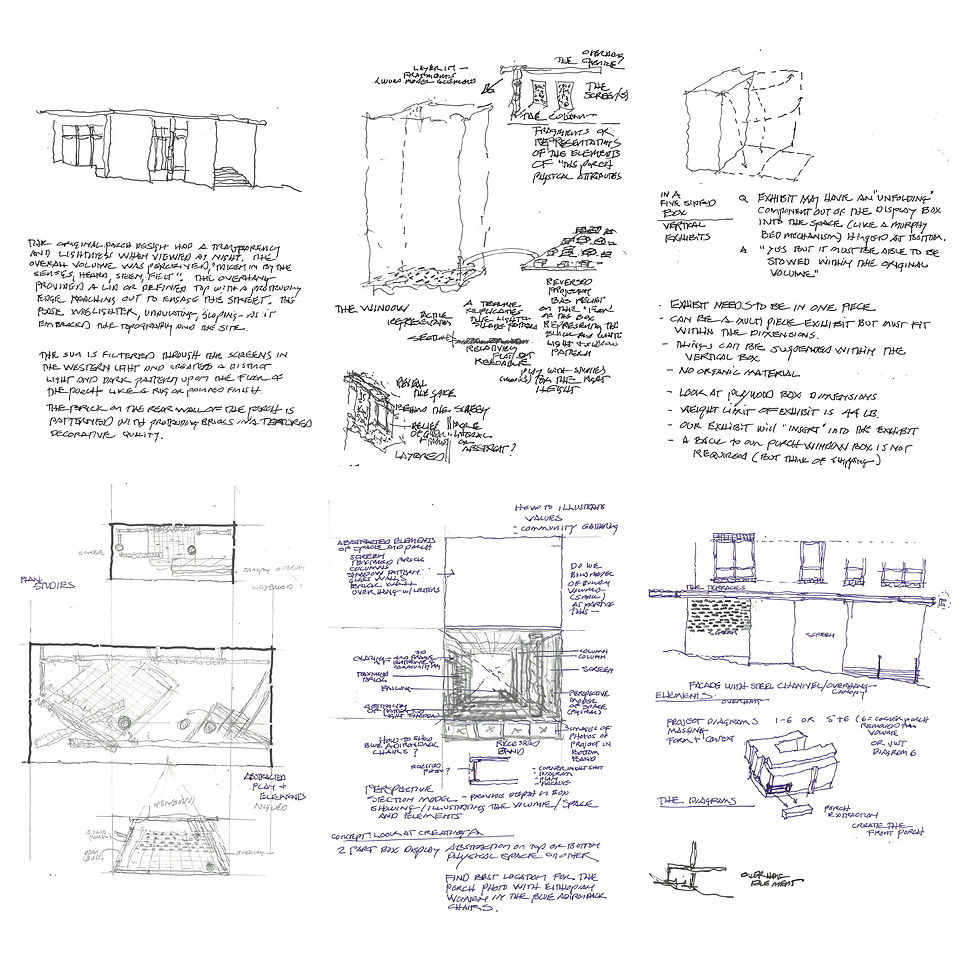 THE ORIGINAL PORCH DESIGN HAD A TRANSPARENCY
AND LIGHTNESS WHEN VIEWED AT NIGHT. THE
OVERALL VOLUME WAS PERCEIVED, "TAKEN IN BY THE
SENSES, HEARD, SEEN, FELT". THE OVERHANG
PROVIDED A LID OR DEFINED TOP WITH A PROTRUDING
EDGE REACHING OUT TO ENGAGE THE STREET. THE
BASE WAS LIGHTER, UNDULATING, SLOPING - AS IT
EMBRACED THE TOPOGRAPHY AND THE SITE.
THE SUN IS FILTERED THROUGH THE SCREENS IN
THE WESTERN LIGHT AND CREATED A DISTINCT
LIGHT AND DARK PATTERN UPON THE FLOOR OF
THE PORCH LIKE A RUG OR POLISHED FINISH.
THE BRICK ON THE REAR WALL OF THE PORCH IS
PATTERNED WITH PROTRUDING BRICKS IN A TEXTURED
DECORATIVE QUALITY.
LAYER IN -
FRAGMENTS
THE
THE
SCREEN(S)
THE COLUMN
FRAGMENTS OR
REPRESENTATIONS
OF THE ELEMENTS
OF "THE PORCH
PHYSICAL ATTRIBUTES
THE WINDOW
A TEXTURE
REPLICATES
THE LIGHT +
SHADE PATTERN
RELATIVELY
FLAT
REVERSED
BAS RELIEF
ON THE "FLOOR"
OF THE BOX
REPRESENTING THE
BLACK AND WHITE
LIGHT + SHADOW
PATTERN
PLAY WITH
FOR THE RIGHT
HEIGHT
REVEAL
THE SPACE
BEHIND THE SCREEN
RELIEF
MORE
LITERAL
OR
ABSTRACT?
LAYERED
IN A
FIVE SIDED
BOX
VERTICAL
EXHIBITS
Q EXHIBIT MAY HAVE AN "UNFOLDING"
COMPONENT OUT OF THE DISPLAY BOX
INTO THE SPACE (LIKE A MURPHY
BED MECHANISM) HINGED AT BOTTOM.
A "YES BUT IT MUST BE ABLE TO BE
STOWED WITHIN THE ORIGINAL
VOLUME"
- EXHIBIT NEEDS TO BE IN ONE PIECE
- CAN BE A MULTI PIECE EXHIBIT BUT MUST FIT
WITHIN THE DIMENSIONS.
- THINGS CAN BE SUSPENDED WITHIN THE
VERTICAL BOX
- NO ORGANIC MATERIAL
- LOOK AT PLYWOOD BOX DIMENSIONS
- WEIGHT LIMIT OF EXHIBIT IS 44 LB.
- OUR EXHIBIT WILL "INSERT" INTO THE EXHIBIT
- A BACK TO OUR PORCH WINDOW BOX IS NOT
REQUIRED (BUT THINK OF SHIPPING)
PLAN
STUDIES
ABSTRACTED
PLAY +
ELEMENTS
ANGLED
HOW TO ILLUSTRATE
VALUES
- COMMUNITY GATHERING
ABSTRACTED ELEMENTS
OF SPACE AND PORCH
SCREEN
TEXTURED BRICK
COLUMNS
SHADOW PATTERN
GLASS WALLS
BRICK WALL
OVERHANG W/LETTERS
DO WE
BLDG MODEL
OF
VOLUME
(SMALL)
AS PART OF
THIS -
TEXTURED
BRICK
RAILING
COLUMN
COLUMN
SCREEN
PERSPECTIVE
MODEL
OF SPACE
IMAGES OR
PHOTOS OF
PROJECT IN
BOTTOM
BAND
HOW TO SHOW
BLUE ADIRONDACK
CHAIRS?
RECESSED
BAND
- DIAGRAM
- PLAN
PERSPECTIVE
SECTION MODEL - PROVIDE DEPTH IN BOX
SHOWING / ILLUSTRATING THE VOLUME / SPACE
AND ELEMENTS
CONCEPT LOOK AT CREATING A
2 PART BOX DISPLAY ABSTRACTION ON TOP OR BOTTOM
PHYSICAL SPACE ON OTHER
FIND BEST LOCATION FOR THE
PORCH PHOTO WITH ETHIOPIAN
WOMEN IN THE BLUE ADIRONDACK
CHAIRS.
THE TERRACES
SCREEN
SCREEN
FACADE WITH STEEL CHANNEL/OVERHANG
CANOPY
ELEMENTS
PROJECT DIAGRAMS 1-6 OR 5+6 (6 = CORNER PORCH
REMOVED FROM
VOLUME
MASSING
FORM + CONTEXT
OR JUST
DIAGRAM 6
THE DIAGRAMS
PORCH
EXTRACTION
CREATE THE
FRONT PORCH
OVERHANG
ELEMENT